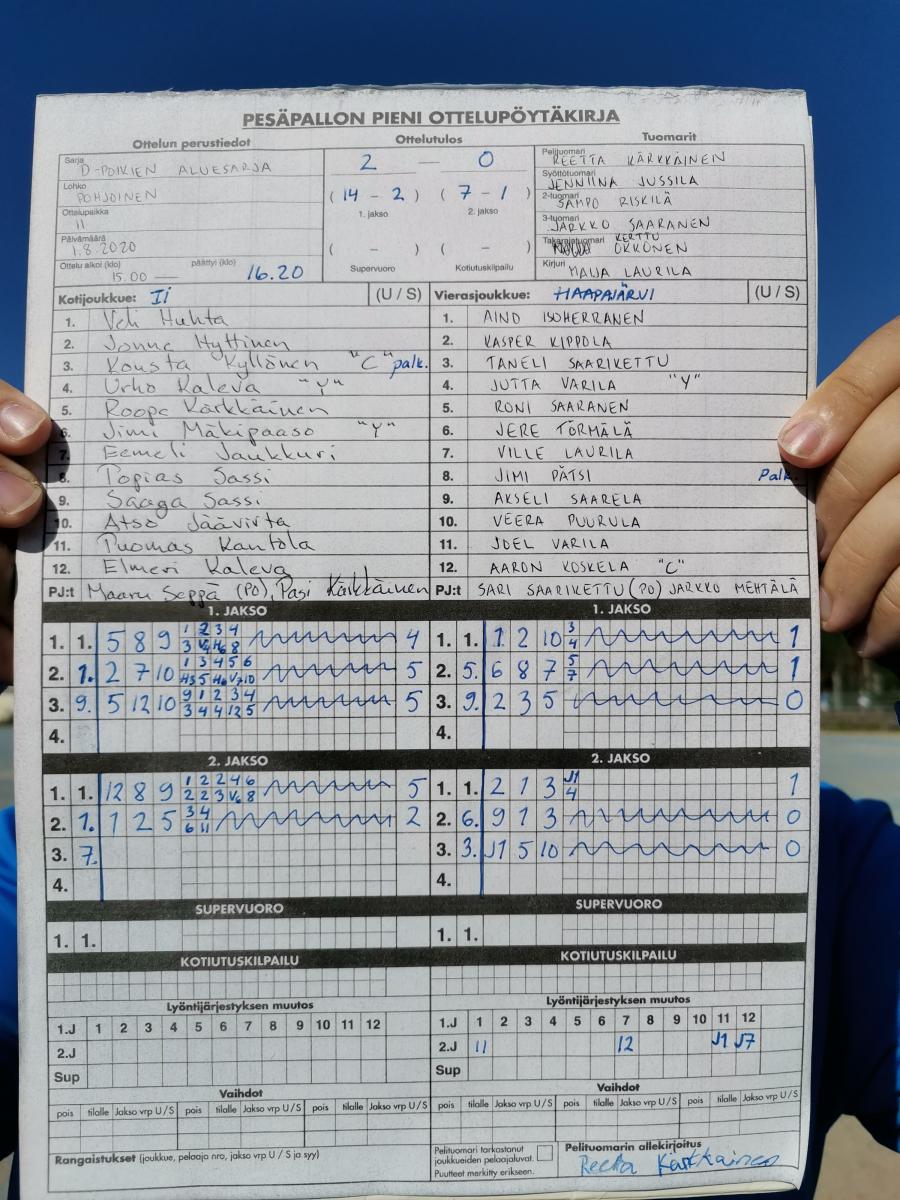 PESÄPALLON PIENI OTTELUPÖYTÄKIRJA
Ottelun perustiedot
Sarja
D-POIKIEN ALUESARJA
Lohko
POHJOINEN
Ottelupaikka
II
Päivämäärä
1.8.2020
Ottelu alkoi (klo) päättyi (klo)
15.00 — 16.20
Ottelutulos
2 — 0
(14 - 2) (7 - 1)
1. jakso 2. jakso
( - ) ( - )
Supervuoro Kotiutuskilpailu
Tuomarit
Pelituomari
REETTA KÄRKKÄINEN
Syöttötuomari
JENNIINA JUSSILA
2-tuomari
SAMPO RISKILÄ
3-tuomari
JARKKO SAARANEN
Takarajatuomari KERTTU
OKKONEN
Kirjuri
MAIJA LAURILA
Kotijoukkue: Ii (U / S)
1. Veli Huhta
2. Jonne Hyttinen
3. Kousta Kyllönen "C" palk.
4. Urho Kaleva "Y"
5. Roope Kärkkäinen
6. Jimi Mäkipaaso "Y"
7. Eemeli Jaukkuri
8. Topias Sassi
9. Saaga Sassi
10. Atso Jäävirta
11. Tuomas Kantola
12. Elmeri Kaleva
PJ:t Maaru Seppä (PO), Pasi Kärkkäinen
Vierasjoukkue: HAAPAJÄRVI (U / S)
1. AINO ISOHERRANEN
2. KASPER KIPPOLA
3. TANELI SAARIKETTU
4. JUTTA VARILA "Y"
5. RONI SAARANEN
6. JERE TÖRMÄLÄ
7. VILLE LAURILA
8. JIMI PÄTSI Palk.
9. AKSELI SAARELA
10. VEERA PUURULA
11. JOEL VARILA
12. AARON KOSKELA "C"
PJ:t SARI SAARIKETTU (PO) JARKKO MEHTÄLÄ
1. JAKSO
1 2 3 4
1. 1. 5 8 9 4
1 3 4 5 6
2. 1. 2 7 10 5
9 1 2 3 4
3. 9. 5 12 10 3 4 4 12 5 5
4.
1. JAKSO
1. 1. 1 2 10 3 1
4
2. 5. 6 8 7 5 1
7
3. 9. 2 3 5 0
4.
2. JAKSO
1 2 2 4 6
1. 1. 12 8 9 5
3 4
2. 1. 1 2 5 6 11 2
3. 7.
4.
2. JAKSO
J1
1. 1. 2 1 3 4 1
2. 6. 9 1 3 0
3. 3. J1 5 10 0
4.
SUPERVUORO
1. 1.
SUPERVUORO
1. 1.
KOTIUTUSKILPAILU
KOTIUTUSKILPAILU
Lyöntijärjestyksen muutos
1.J 1 2 3 4 5 6 7 8 9 10 11 12
2.J
Sup
Lyöntijärjestyksen muutos
1.J 1 2 3 4 5 6 7 8 9 10 11 12
2.J 11 12 J1 J7
Sup
Vaihdot
pois tilalle Jakso vrp U / S pois tilalle Jakso vrp U / S pois tilalle Jakso vrp U / S
Vaihdot
pois tilalle Jakso vrp U / S pois tilalle Jakso vrp U / S pois tilalle Jakso vrp U / S
Rangaistukset (joukkue, pelaaja nro, jakso vrp U / S ja syy)
Pelituomari tarkastanut
joukkueiden pelaajaluvat.
Puutteet merkitty erikseen.
Pelituomarin allekirjoitus
Reetta Kärkkäinen